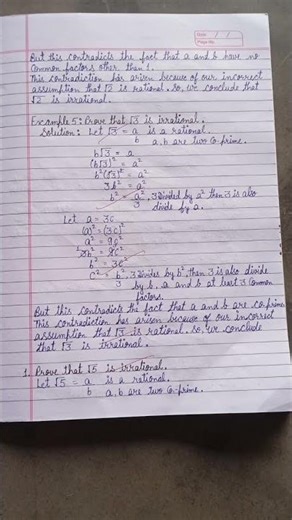 Date / /
Page No.
But this contradicts the fact that a and b have no
common factors other than 1.
This contradiction has arisen because of our incorrect
assumption that √2 is rational. So, we conclude that
√2 is irrational.
Example 5: Prove that √3 is irrational.
Solution: Let √3 = a/b is a rational.
a, b are two Co-prime.
b√3 = a
(b√3)² = a²
b²(√3)² = a²
3b² = a²
b² = a²/3, 3 divided by a² then 3 is also
divide by a.
Let a = 3c
(a)² = (3c)²
a² = 9c²
3b² = 9c²
b² = 3c²
c² = b²/3, 3 divides by b², then 3 is also divide
by b, a and b at least 3 Common
factors.
But this contradicts the fact that a and b are co-prime
This contradiction has arisen because of our incorrect
assumption that √3 is rational. So, we conclude
that √3 is irrational.
1. Prove that √5 is irrational.
Let √5 = a/b is a rational.
a, b are two Co-prime.